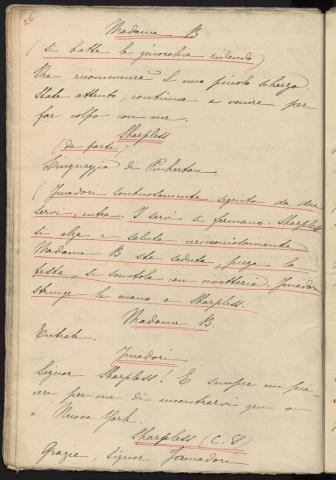 26
Madame B
(si batte le ginocchia ridendo)
Ora ricomincerà il mio piccolo scherzo
State attento, continua a venire per
far colpo con me.
Sharpless
(da parte)
Linguaggio di Pinkerton
(Yamadori sontuosamente seguito da due
servi, entra. I servi si fermano. Sharpless
si alza e saluta cerimoniosamente
Madame B sta seduta, piega la
testa, si sventola con civetteria. Yamadori
stringe la mano a Sharpless.
Madame B.
Entrate.
Yamadori
Signor Sharpless! È sempre un pia-
cere per me di incontrarvi qui o
a Nuova York.
Sharpless (C. S)
Grazie, signor Yamadori